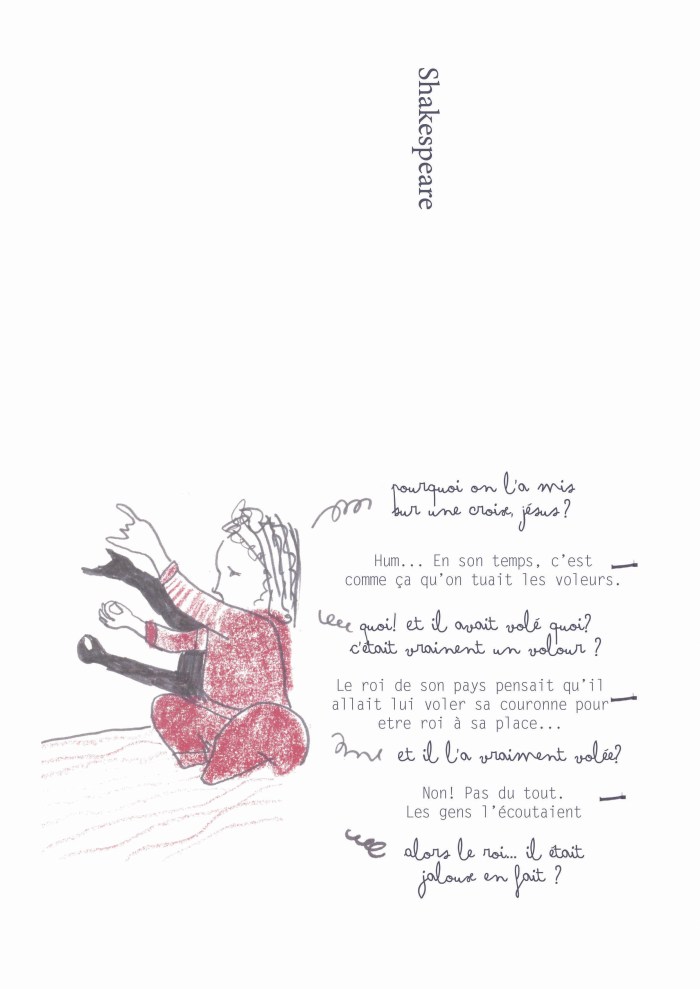 Shakespeare
pourquoi on l'a mis
sur une croix, jésus?
Hum... En son temps, c'est
comme ça qu'on tuait les voleurs.
quoi! et il avait volé quoi?
c'était vrainent un volour ?
Le roi de son pays pensait qu'il
allait lui voler sa couronne pour
etre roi à sa place...
et il l'a vraiment volée?
Non! Pas du tout.
Les gens l'écoutaient
alors le roi... il était
jaloux en fait ?